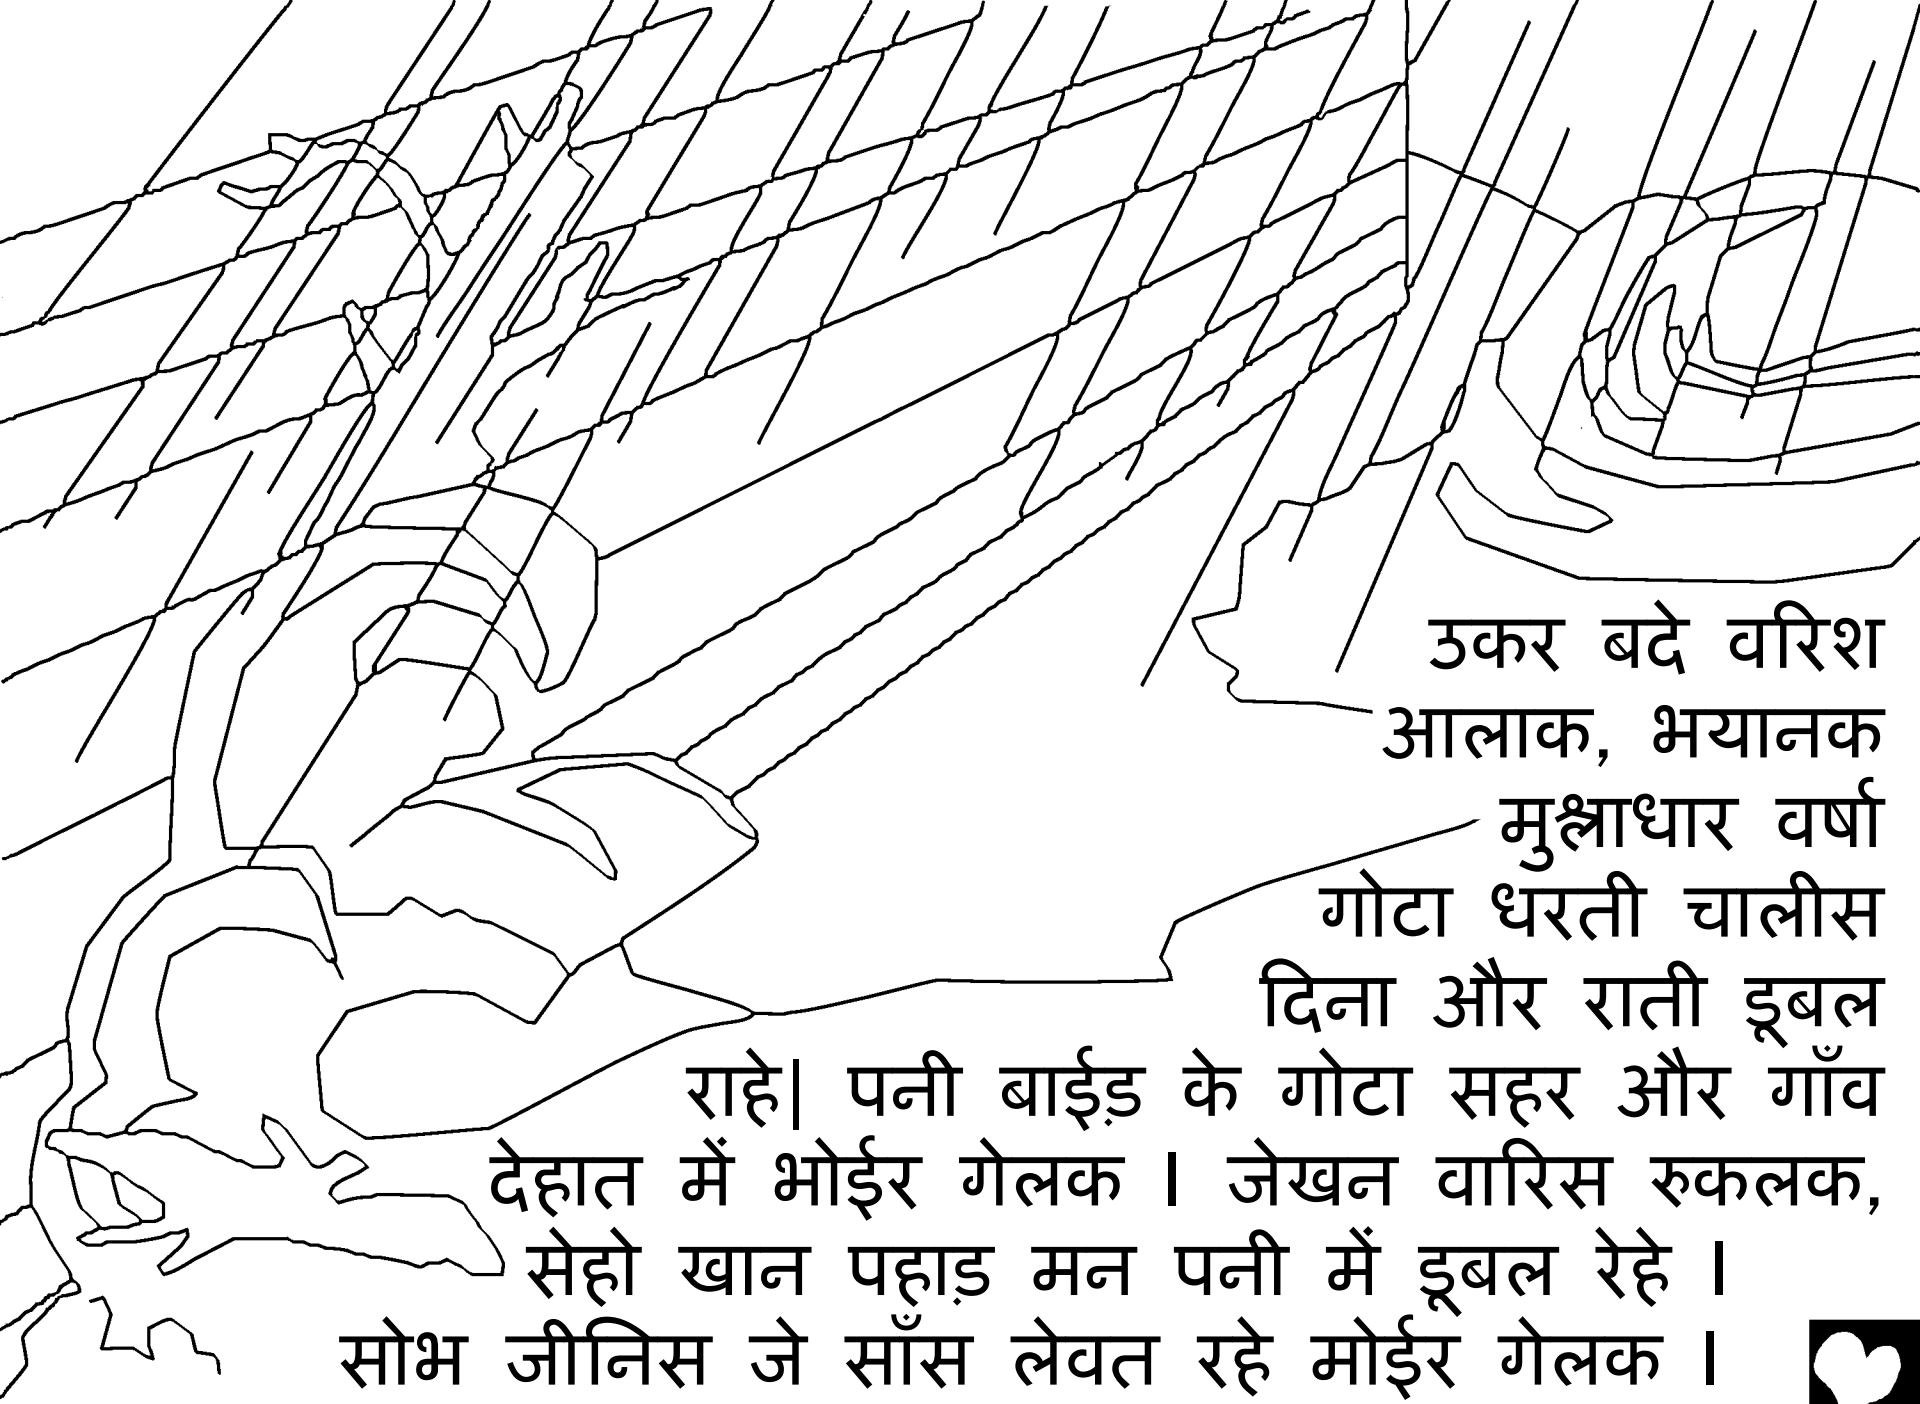 उकर बदे वरिश
आलाक, भयानक
मुश्लाधार वर्षा
गोटा धरती चालीस
दिना और राती डूबल
राहे| पनी बाईड़ के गोटा सहर और गाँव
देहात में भोईर गेलक I जेखन वारिस रुकलक,
सेहो खान पहाड़ मन पनी में डूबल रेहे I
सोभ जीनिस जे साँस लेवत रहे मोईर गेलक I